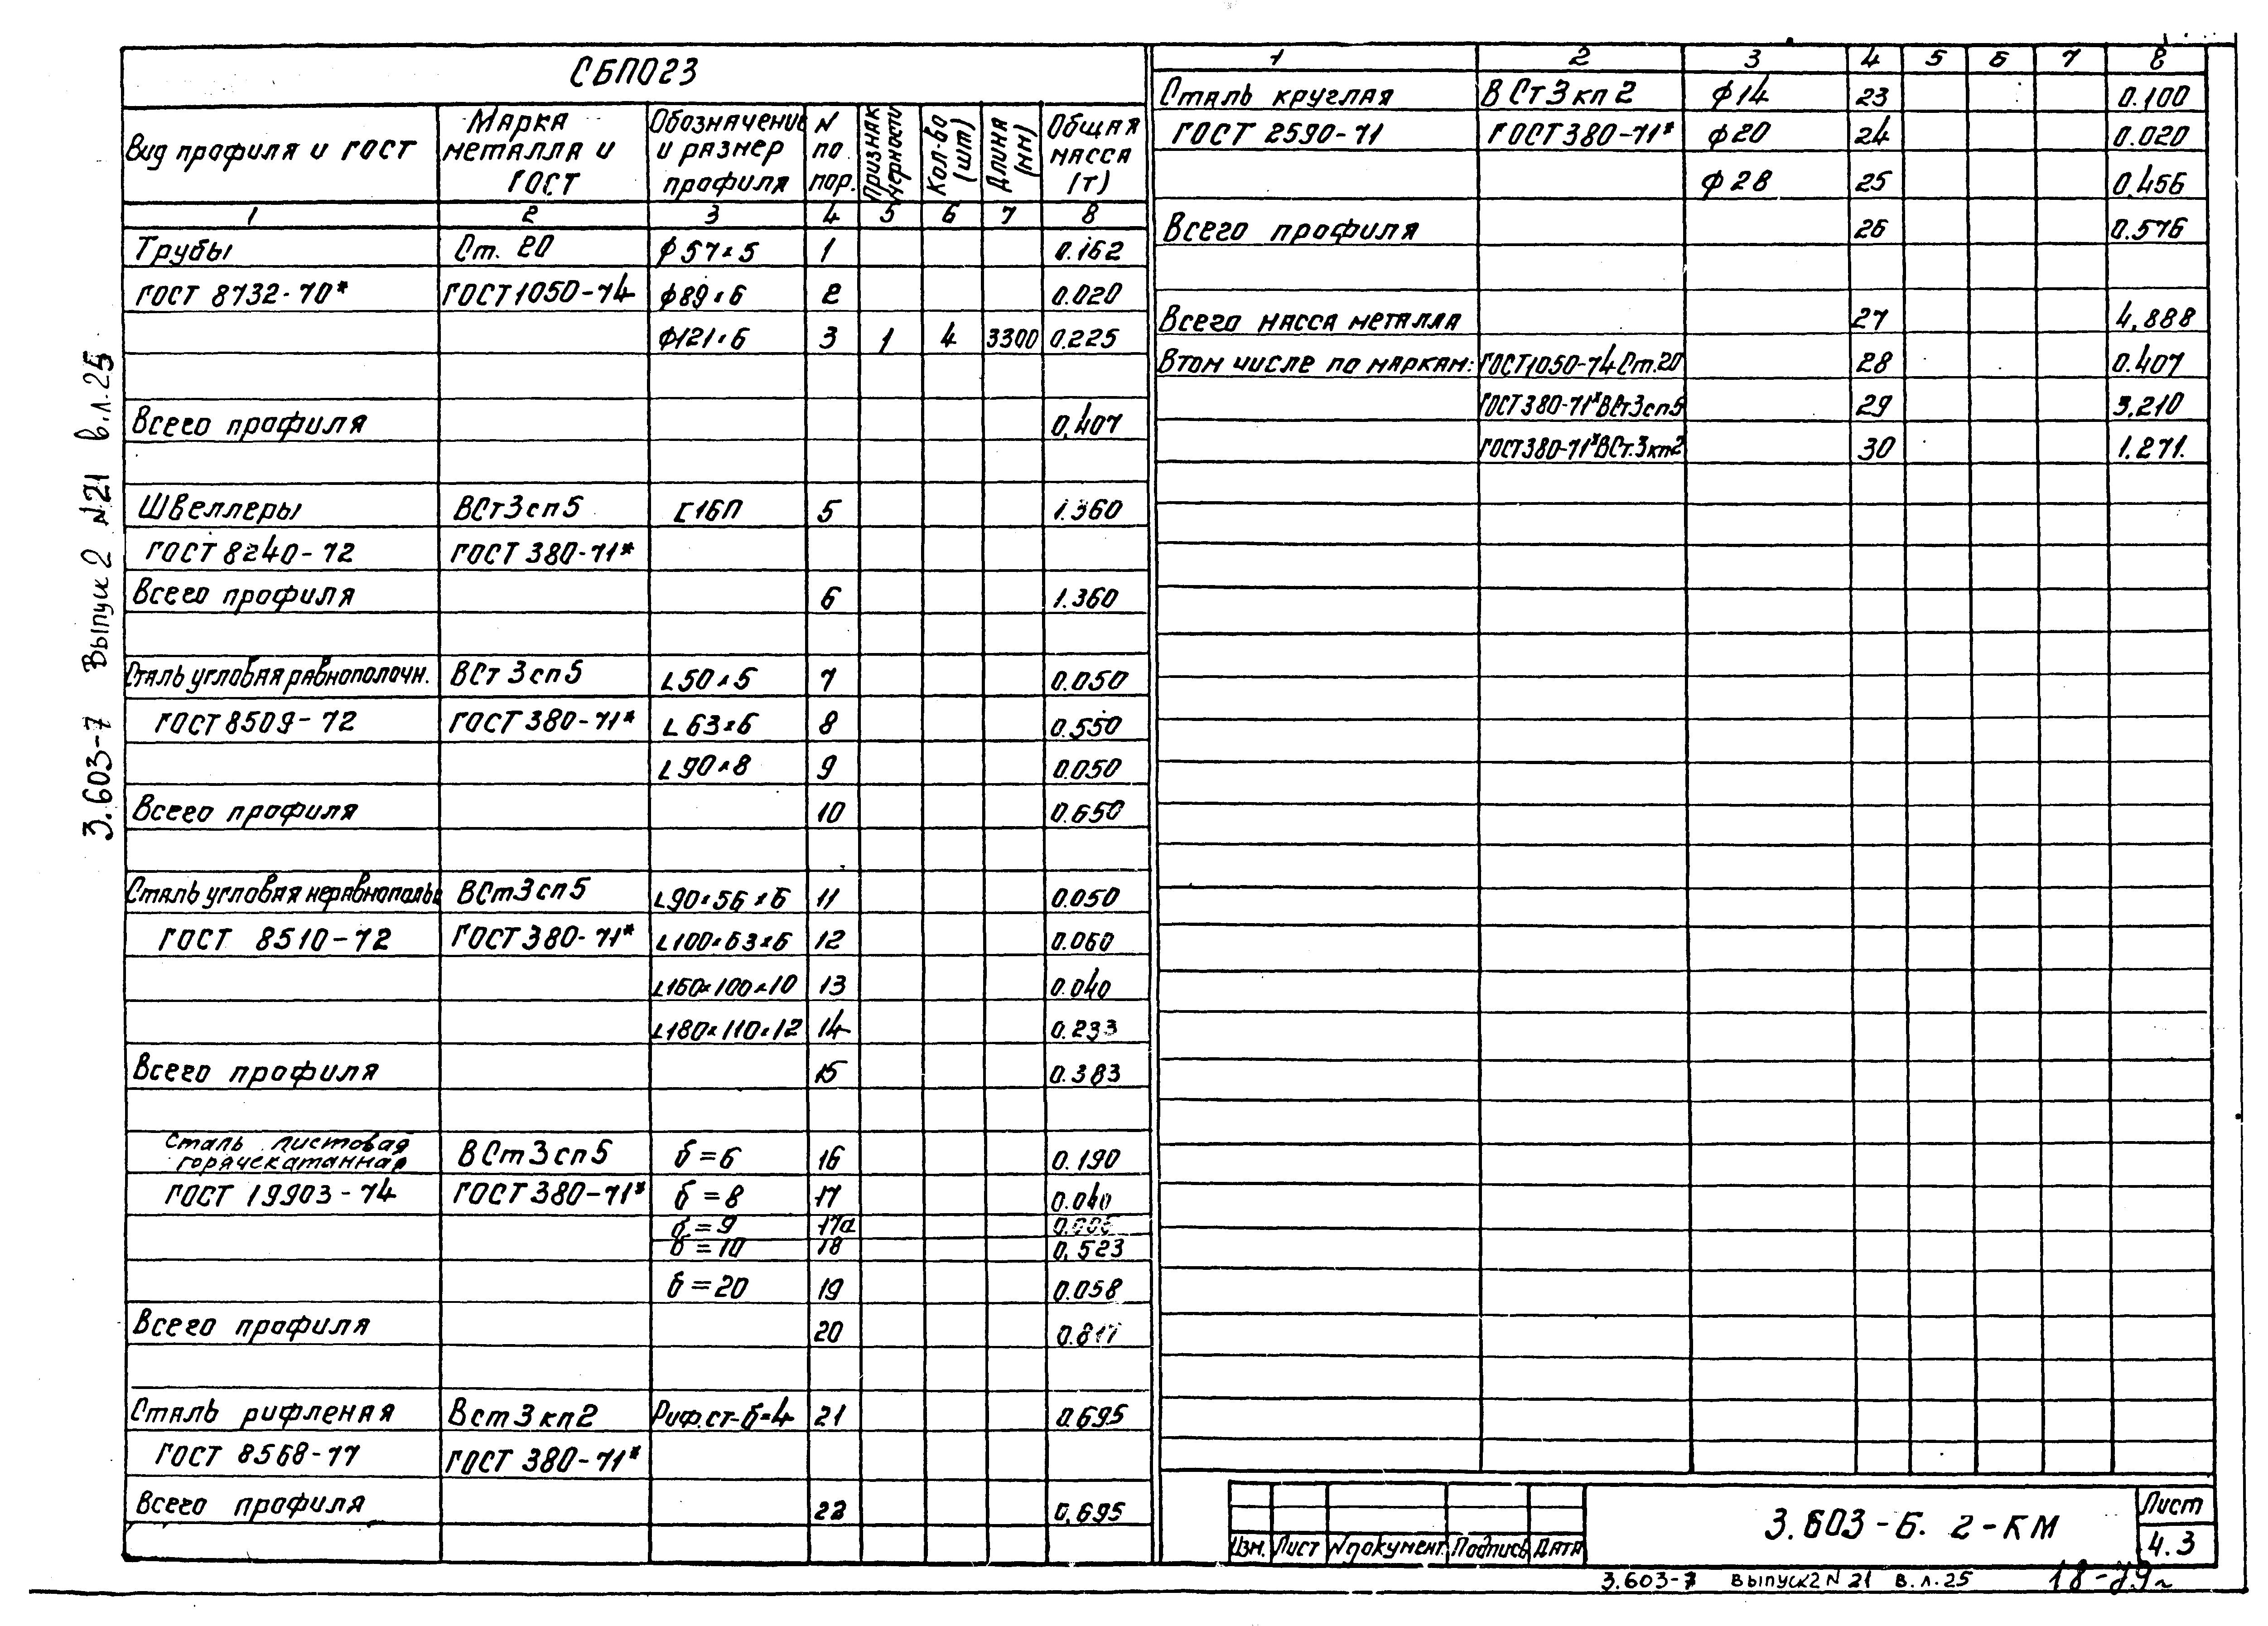 СБПО23
Вид профиля и ГОСТ
Марка металла и ГОСТ
Обозначение и размер профиля
N по пор.
Признак черности
Кол-во (шт)
Длина (мм)
Общая масса (т)
1 2 3 4 5 6 7 8
Трубы Ст. 20 ф57×5 1 0.162
ГОСТ 8732-70* ГОСТ1050-74 ф89×6 2 0.020
ф121×6 3 1 4 3300 0.225
Всего профиля 0.407
Швеллеры ВСт3сп5 [16П 5 1.360
ГОСТ 8240-72 ГОСТ 380-71*
Всего профиля 6 1.360
Сталь угловая равнополочн. ВСт3сп5 L50×5 7 0.050
ГОСТ 8509-72 ГОСТ 380-71* L63×6 8 0.550
L90×8 9 0.050
Всего профиля 10 0.650
Сталь угловая ВСт3сп5 L90×56×6 11 0.050
ГОСТ 8510-72 ГОСТ 380-71* L100×63×6 12 0.060
L160×100×10 13 0.040
L180×110×12 14 0.233
Всего профиля 15 0.383
Сталь листовая
горячекатанная ВСт3сп5 б=6 16 0.190
ГОСТ 19903-74 ГОСТ 380-71* б=8 17 0.040
б=9 17а
б=10 18 0.523
б=20 19 0.058
Всего профиля 20 0.817
Сталь рифленая Вст3кп2 Риф.ст-б=4 21 0.695
ГОСТ 8568-77 ГОСТ 380-71*
Всего профиля 22 0.695
1 2 3 4 5 6 7 8
Сталь круглая ВСт3кп2 ф14 23 0.100
ГОСТ 2590-71 ГОСТ380-71* ф20 24 0.020
ф28 25 0.456
Всего профиля 26 0.576
Всего масса металла 27 4.888
Втом числе по маркам: ГОСТ1050-74 Ст.20 28 0.407
ГОСТ380-71*ВСт3сп5 29 3.210
ГОСТ380-71*ВСт.3кп2 30 1.271.
Изм. Лист Nдокумент Подпись Дата
3.603-Б. 2-КМ
Лист
4.3
3.603-7 выпуск2 N 21 в.л.25
3.603-7 Выпуск 2 N21 в.л.25